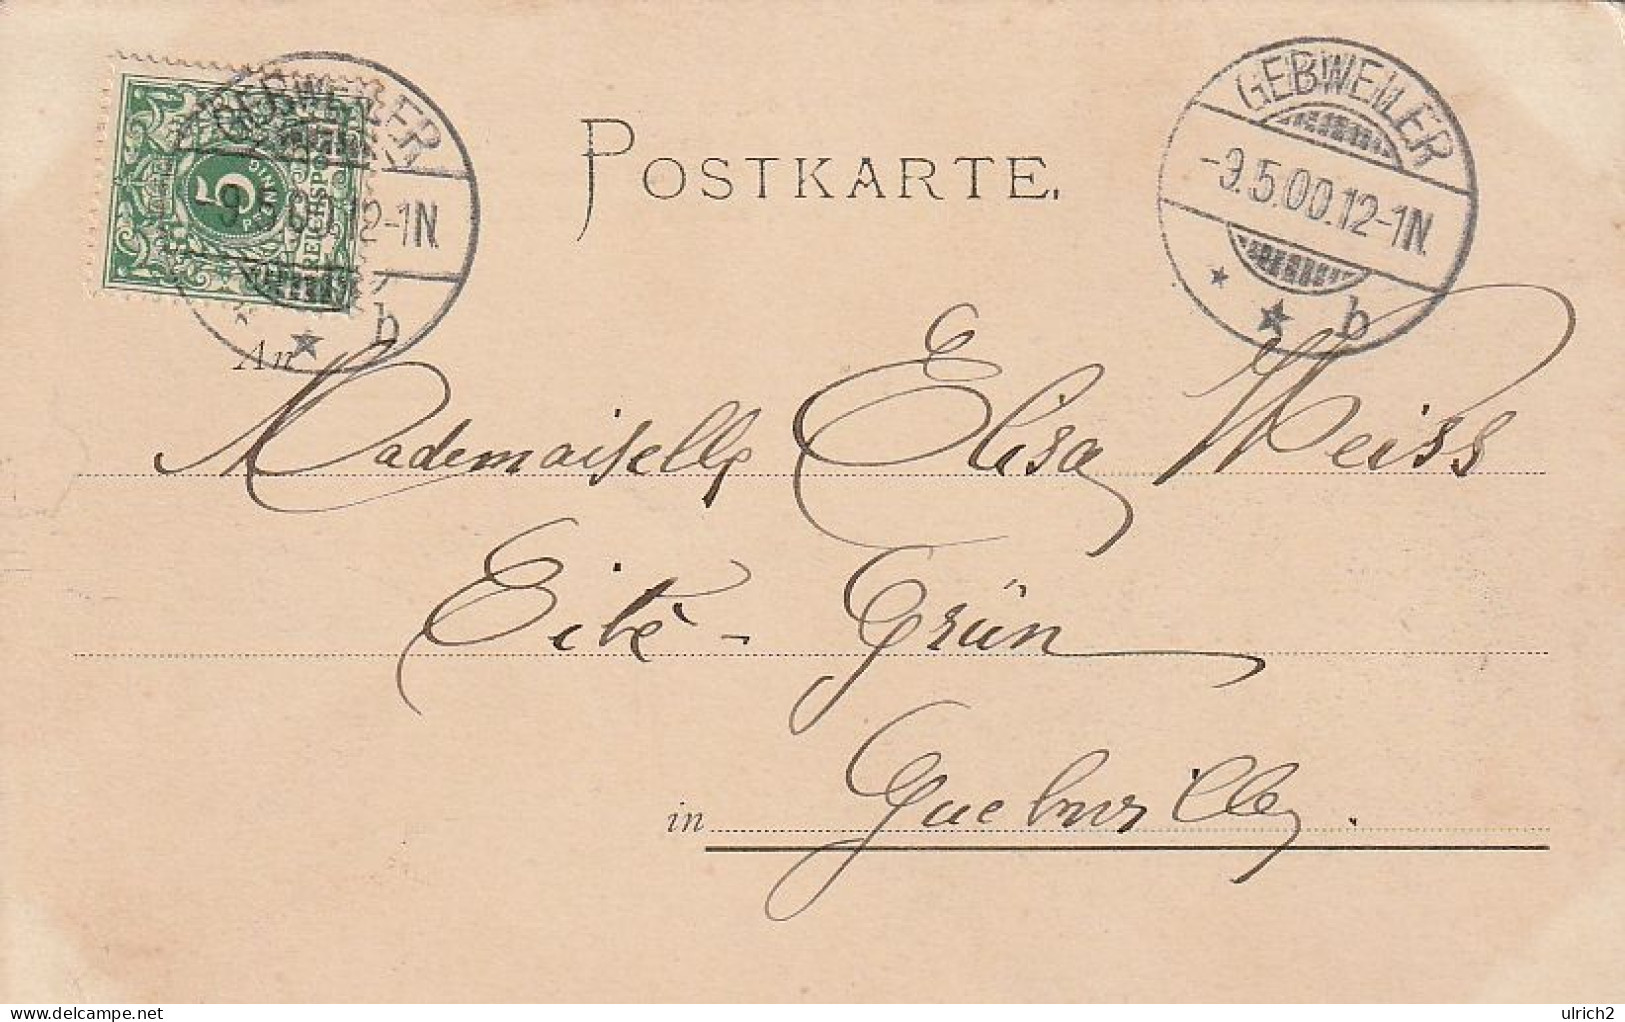 GEBWEILER
5
PFENNIG
REICHSPOST
9.5.00.12-1N.
b
POSTKARTE.
GEBWEILER
-9.5.00.12-1N.
b
An
Mademoiselle Elisa Weiss
Cité-Grün
in Guebwiller.
delcampe.net
ulrich2